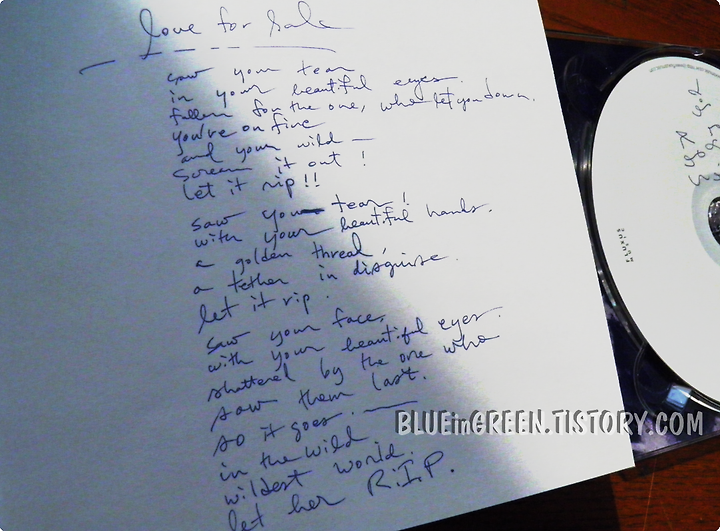 Love for Sale
saw your tear
in your beautiful eyes.
fallen for the one, who let you down.
you're on fire
and your wild —
scream it out!
let it rip!!
saw your tear!
with your beautiful hands.
a golden thread,
a tether in disguise.
let it rip.
saw your face,
with your beautiful eyes.
shattered by the one who
saw them last.
so it goes. —
in the wild
wildest world.
let her R.I.P.
BLUEinGREEN.TISTORY.COM